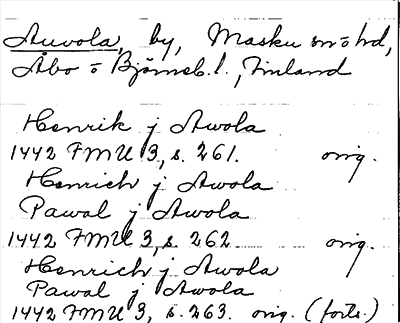 Auvola, by, Masku sn o hd,
Åbo o Björneb. l., Finland
Henrik j Awola
1442 FMU 3, s. 261. orig.
Henrich j Awola
Pawal j Awola
1442 FMU 3, s. 262 orig.
Henrich j Awola
Pawal j Awola
1442 FMU 3, s. 263. orig. (forts.)